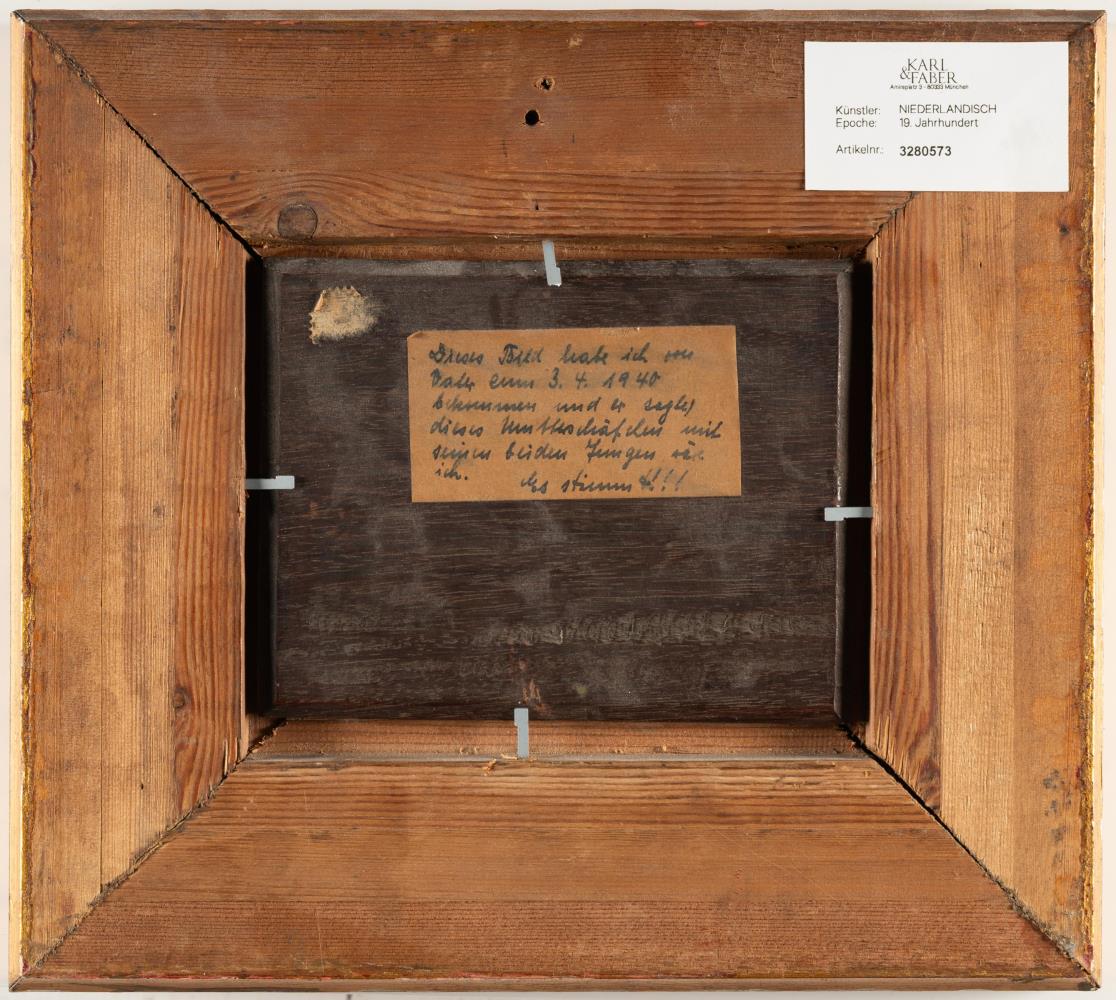 KARL
& FABER
Amiraplatz 3 · 80333 München
Künstler: NIEDERLANDISCH
Epoche: 19. Jahrhundert
Artikelnr.: 3280573
Dieses Bild habe ich von
Vater zum 3. 4. 1940
bekommen und er sagte,
dieses Mutterschäfchen mit
seinen beiden Jungen wär
ich. Es stimmt!!!